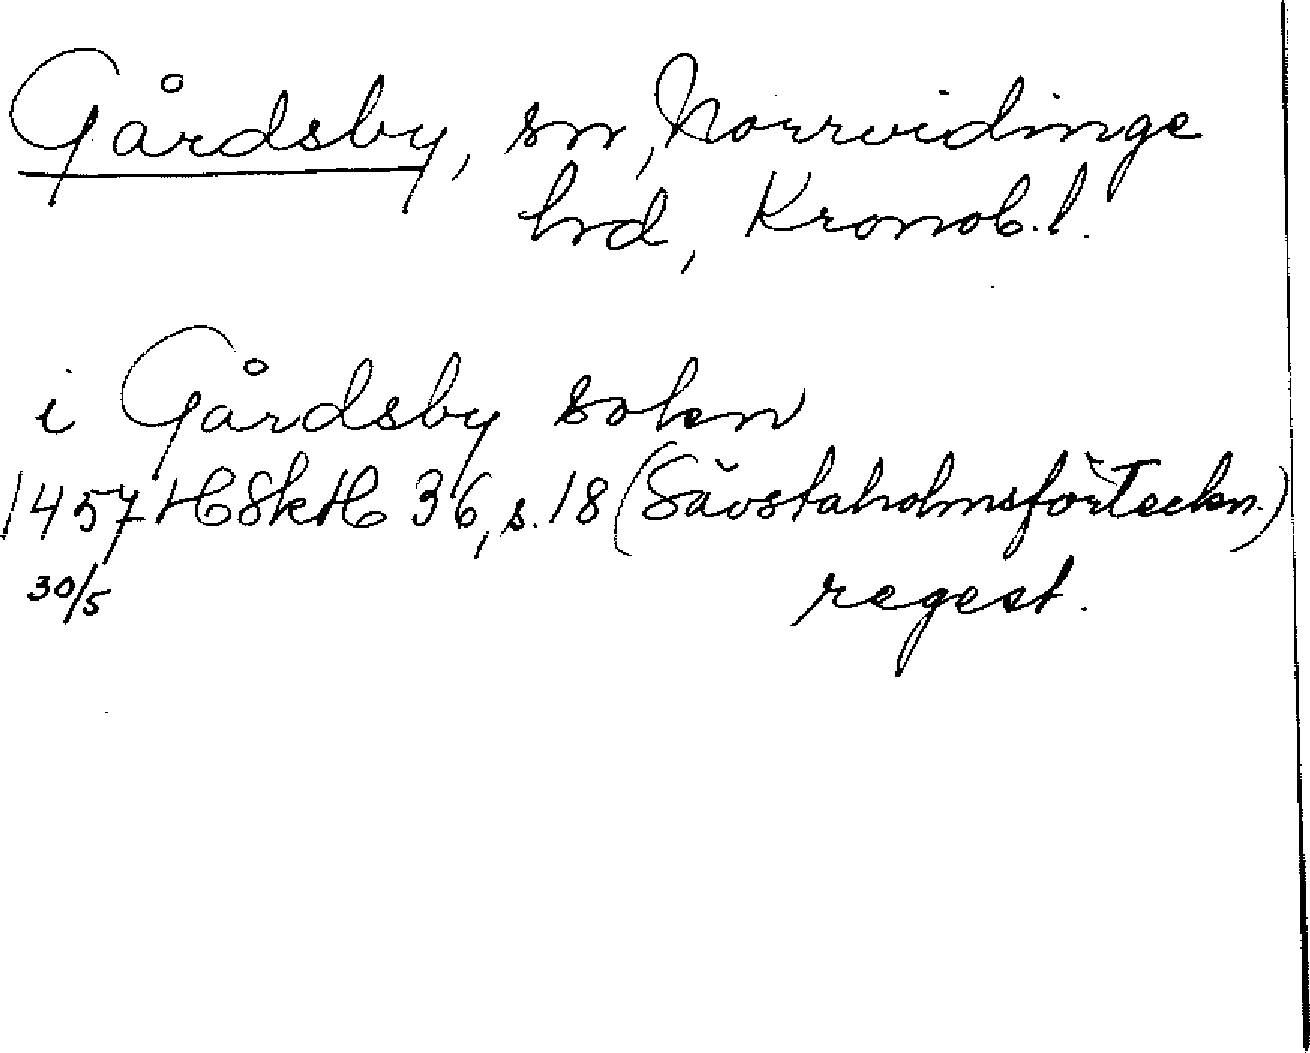 Gårdsby, sn, Norrvidinge
hd, Kronob. l.
i Gårdsby sokn
1457 HSkH 36, s. 18 (Sävstaholmsförteckn.)
30/5 regest.